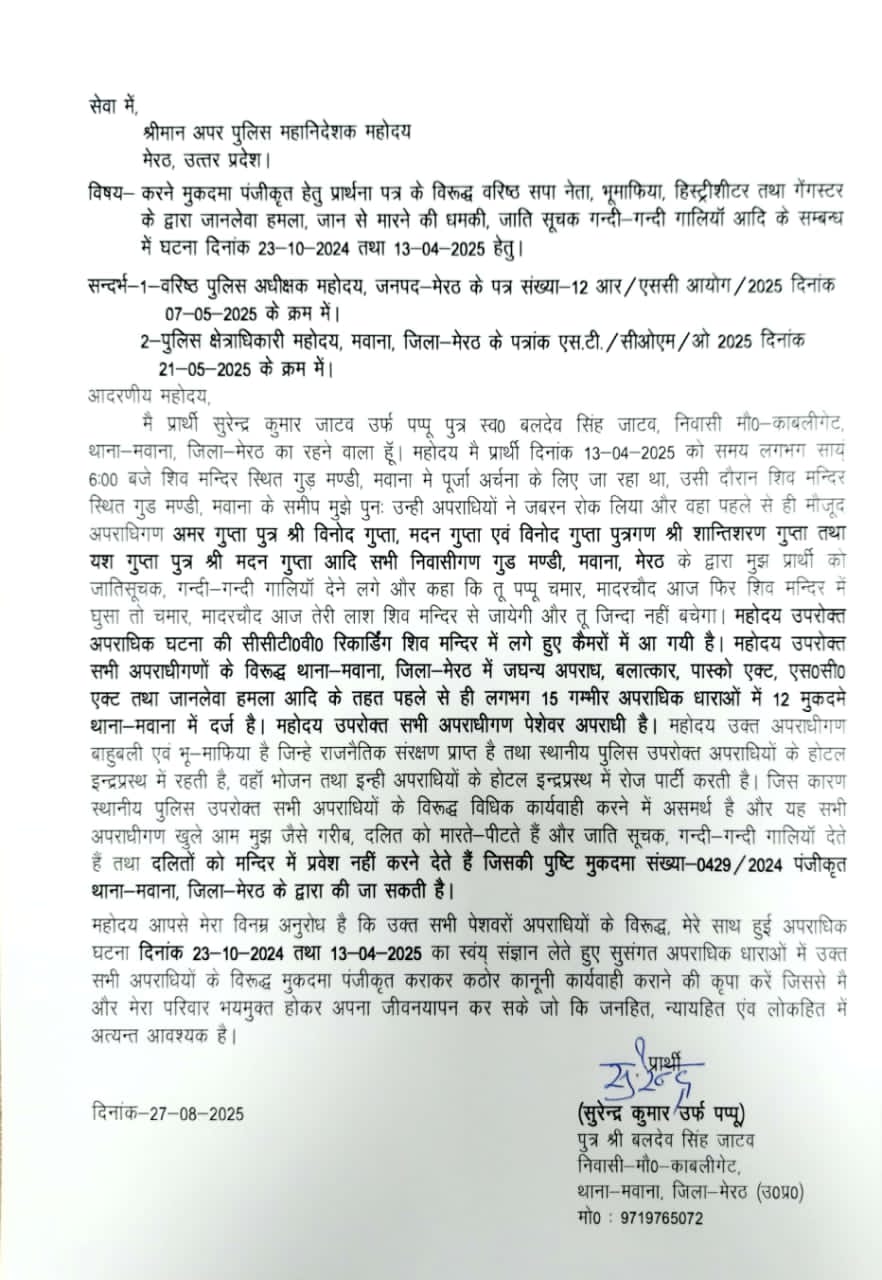 सेवा में,
श्रीमान अपर पुलिस महानिदेशक महोदय
मेरठ, उत्तर प्रदेश।
विषय– करने मुकदमा पंजीकृत हेतु प्रार्थना पत्र के विरूद्ध वरिष्ठ सपा नेता, भूमाफिया, हिस्ट्रीशीटर तथा गेंगस्टर
के द्वारा जानलेवा हमला, जान से मारने की धमकी, जाति सूचक गन्दी–गन्दी गालियॉ आदि के सम्बन्ध
में घटना दिनांक 23–10–2024 तथा 13–04–2025 हेतु।
सन्दर्भ–1–वरिष्ठ पुलिस अधीक्षक महोदय, जनपद–मेरठ के पत्र संख्या–12 आर/एससी आयोग/2025 दिनांक
07–05–2025 के क्रम में।
2–पुलिस क्षेत्राधिकारी महोदय, मवाना, जिला–मेरठ के पत्रांक एस.टी./सीओएम/ओ 2025 दिनांक
21–05–2025 के क्रम में।
आदरणीय महोदय,
मै प्रार्थी सुरेन्द्र कुमार जाटव उर्फ पप्पू पुत्र स्व0 बलदेव सिंह जाटव, निवासी मौ0–काबलीगेट,
थाना–मवाना, जिला–मेरठ का रहने वाला हूॅ। महोदय मै प्रार्थी दिनांक 13–04–2025 को समय लगभग सायं
6:00 बजे शिव मन्दिर स्थित गुड़ मण्डी, मवाना मे पूर्जा अर्चना के लिए जा रहा था, उसी दौरान शिव मन्दिर
स्थित गुड मण्डी, मवाना के समीप मुझे पुनः उन्ही अपराधियों ने जबरन रोक लिया और वहा पहले से ही मौजूद
अपराधिगण अमर गुप्ता पुत्र श्री विनोद गुप्ता, मदन गुप्ता एवं विनोद गुप्ता पुत्रगण श्री शान्तिशरण गुप्ता तथा
यश गुप्ता पुत्र श्री मदन गुप्ता आदि सभी निवासीगण गुड मण्डी, मवाना, मेरठ के द्वारा मुझ प्रार्थी को
जातिसूचक, गन्दी–गन्दी गालियॉ देने लगे और कहा कि तू पप्पू चमार, मादरचौद आज फिर शिव मन्दिर में
घुसा तो चमार, मादरचौद आज तेरी लाश शिव मन्दिर से जायेगी और तू जिन्दा नहीं बचेगा। महोदय उपरोक्त
अपराधिक घटना की सीसीटी0वी0 रिकार्डिंग शिव मन्दिर में लगे हुए कैमरों में आ गयी है। महोदय उपरोक्त
सभी अपराधीगणों के विरूद्ध थाना–मवाना, जिला–मेरठ में जघन्य अपराध, बलात्कार, पास्को एक्ट, एस0सी0
एक्ट तथा जानलेवा हमला आदि के तहत पहले से ही लगभग 15 गम्भीर अपराधिक धाराओं में 12 मुकदमे
थाना–मवाना में दर्ज है। महोदय उपरोक्त सभी अपराधीगण पेशेवर अपराधी है। महोदय उक्त अपराधीगण
बाहुबली एवं भू–माफिया है जिन्हे राजनैतिक संरक्षण प्राप्त है तथा स्थानीय पुलिस उपरोक्त अपराधियों के होटल
इन्द्रप्रस्थ में रहती है, वहॉ भोजन तथा इन्ही अपराधियों के होटल इन्द्रप्रस्थ में रोज पार्टी करती है। जिस कारण
स्थानीय पुलिस उपरोक्त सभी अपराधियों के विरूद्ध विधिक कार्यवाही करने में असमर्थ है और यह सभी
अपराधीगण खुले आम मुझ जैसे गरीब, दलित को मारते–पीटते हैं और जाति सूचक, गन्दी–गन्दी गालियॉ देते
हैं तथा दलितों को मन्दिर में प्रवेश नहीं करने देते हैं जिसकी पुष्टि मुकदमा संख्या–0429/2024 पंजीकृत
थाना–मवाना, जिला–मेरठ के द्वारा की जा सकती है।
महोदय आपसे मेरा विनम्र अनुरोध है कि उक्त सभी पेशवरों अपराधियों के विरूद्ध, मेरे साथ हुई अपराधिक
घटना दिनांक 23–10–2024 तथा 13–04–2025 का स्वंय् संज्ञान लेते हुए सुसंगत अपराधिक धाराओं में उक्त
सभी अपराधियों के विरूद्ध मुकदमा पंजीकृत कराकर कठोर कानूनी कार्यवाही कराने की कृपा करें जिससे मै
और मेरा परिवार भयमुक्त होकर अपना जीवनयापन कर सके जो कि जनहित, न्यायहित एंव लोकहित में
अत्यन्त आवश्यक है।
प्रार्थी
सुरेन्द्र
दिनांक–27–08–2025
(सुरेन्द्र कुमार उर्फ पप्पू)
पुत्र श्री बलदेव सिंह जाटव
निवासी–मौ0–काबलीगेट,
थाना–मवाना, जिला–मेरठ (उ0प्र0)
मो0 : 9719765072